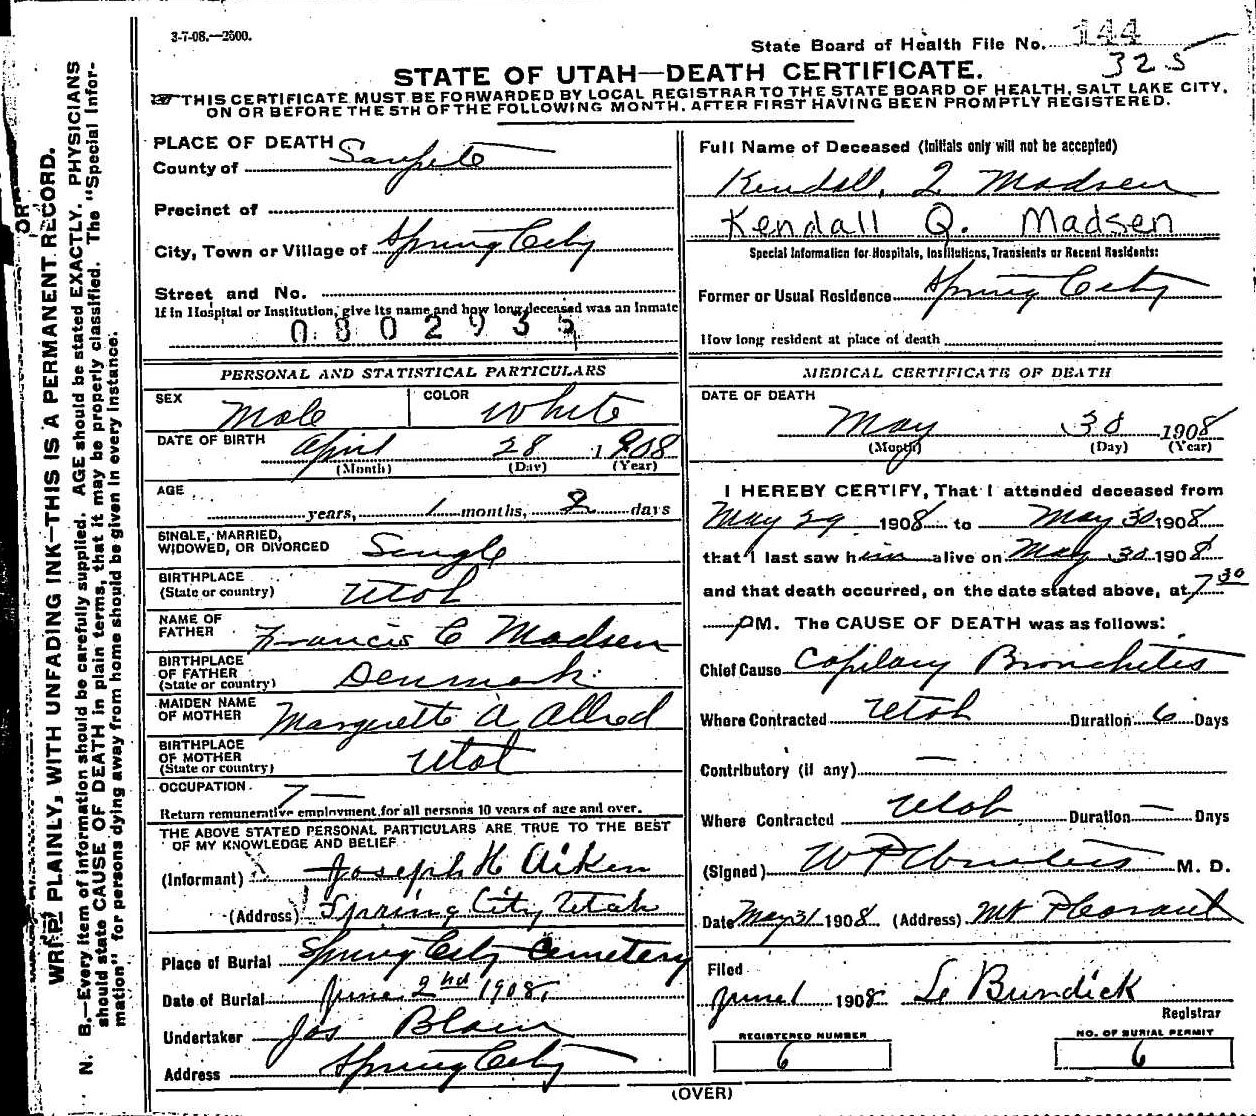 3-7-08.—2500.
State Board of Health File No. 144
325
STATE OF UTAH—DEATH CERTIFICATE.
THIS CERTIFICATE MUST BE FORWARDED BY LOCAL REGISTRAR TO THE STATE BOARD OF HEALTH, SALT LAKE CITY,
ON OR BEFORE THE 5TH OF THE FOLLOWING MONTH, AFTER FIRST HAVING BEEN PROMPTLY REGISTERED.
WRITE PLAINLY, WITH UNFADING INK—THIS IS A PERMANENT RECORD.
N. B.—Every item of information should be carefully supplied. AGE should be stated EXACTLY. PHYSICIANS
should state CAUSE OF DEATH in plain terms, that it may be properly classified. The "Special Infor-
mation" for persons dying away from home should be given in every instance.
PLACE OF DEATH
County of Sanpete
Precinct of
City, Town or Village of Spring City
Street and No.
If in Hospital or Institution, give its name and how long deceased was an Inmate
0802935
PERSONAL AND STATISTICAL PARTICULARS
SEX Male COLOR White
DATE OF BIRTH April 28 1908
(Month) (Day) (Year)
AGE
years, 1 months, 2 days
SINGLE, MARRIED,
WIDOWED, OR DIVORCED Single
BIRTHPLACE
(State or country) Utah
NAME OF
FATHER Francis C Madsen
BIRTHPLACE
OF FATHER
(State or country) Denmark
MAIDEN NAME
OF MOTHER Margrette A Allred
BIRTHPLACE
OF MOTHER
(State or country) Utah
OCCUPATION
Return remunerative employment for all persons 10 years of age and over.
THE ABOVE STATED PERSONAL PARTICULARS ARE TRUE TO THE BEST
OF MY KNOWLEDGE AND BELIEF
(Informant) Joseph H Aiken
(Address) Spring City Utah
Place of Burial Spring City Cemetery
Date of Burial June 2nd 1908
Undertaker Jos Blain
Address Spring City
Full Name of Deceased (Initials only will not be accepted)
Kendall Q Madsen
Kendall Q. Madsen
Special Information for Hospitals, Institutions, Transients or Recent Residents:
Former or Usual Residence Spring City
How long resident at place of death
MEDICAL CERTIFICATE OF DEATH
DATE OF DEATH
May 30 1908
(Month) (Day) (Year)
I HEREBY CERTIFY, That I attended deceased from
May 29 1908 to May 30 1908
that I last saw him alive on May 30 1908
and that death occurred, on the date stated above, at 7 30
P M. The CAUSE OF DEATH was as follows:
Chief Cause Capilary Bronchitis
Where Contracted Utah Duration 6 Days
Contributory (if any) —
Where Contracted Utah Duration — Days
(Signed) M. D.
Date May 31 1908 (Address) Mt Pleasant
Filed
June 1 1908 Bundick
Registrar
REGISTERED NUMBER
6
NO. OF BURIAL PERMIT
6
(OVER)